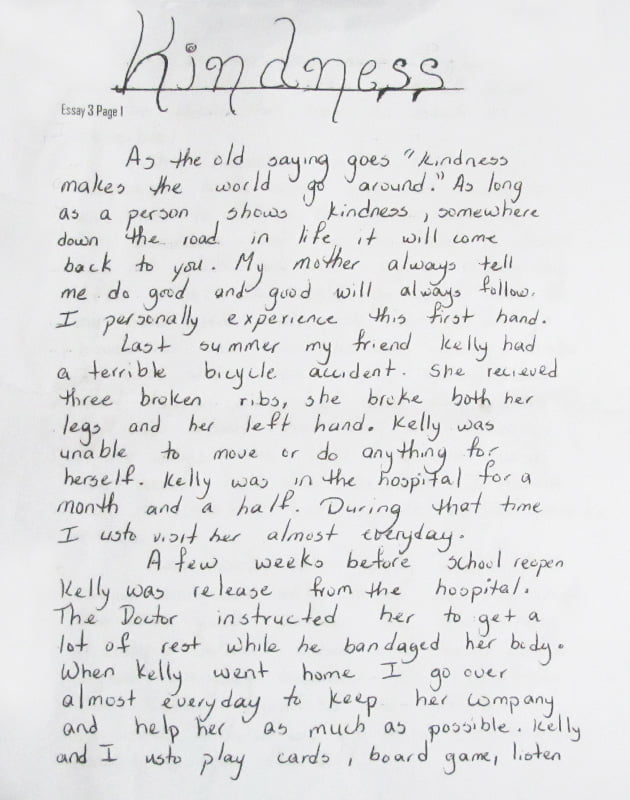 Kindness
Essay 3 Page 1
As the old saying goes "kindness
makes the world go around." As long
as a person shows kindness, somewhere
down the road in life, it will come
back to you. My mother always tell
me do good and good will always follow.
I personally experience this first hand.
Last summer my friend Kelly had
a terrible bicycle accident. She recieved
three broken ribs, she broke both her
legs and her left hand. Kelly was
unable to move or do anything for
herself. Kelly was in the hospital for a
month and a half. During that time
I usto visit her almost everyday.
A few weeks before school reopen
Kelly was release from the hospital.
The Doctor instructed her to get a
lot of rest while he bandaged her body.
When Kelly went home I go over
almost everyday to keep her company
and help her as much as possible. Kelly
and I usto play cards, board game, listen